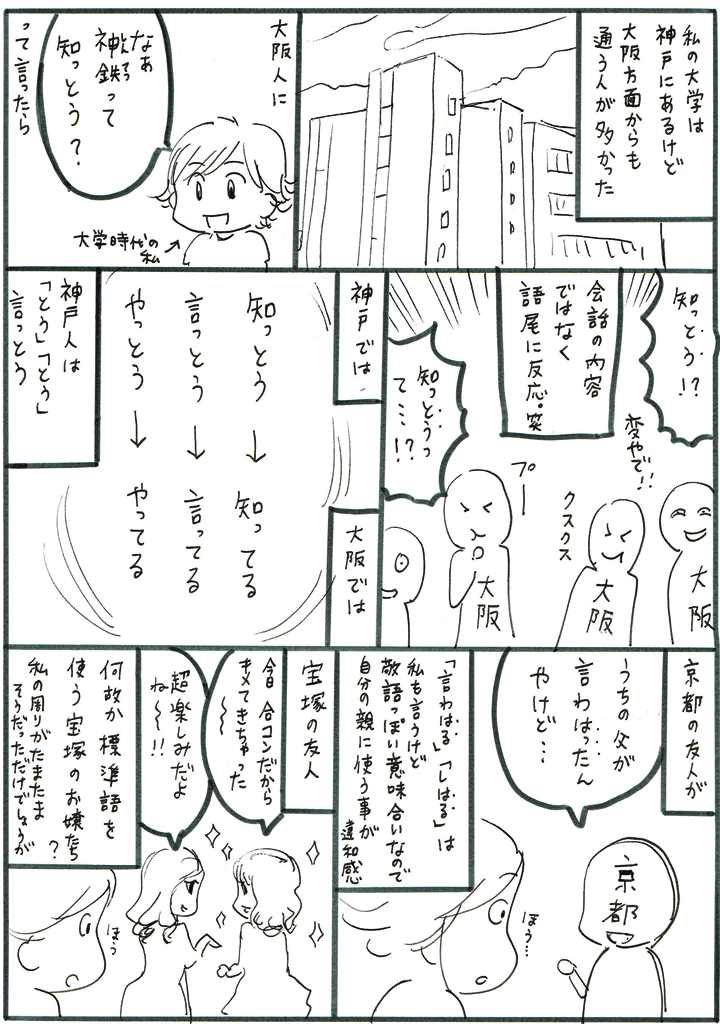 私の大学は
神戸にあるけど
大阪方面からも
通う人が多かった
大阪人に
なぁ
神鉄って
知っとう？
って言ったら
大学時代の
私
知っとう!?
変やで!!
会話の内容
ではなく
語尾に反応。笑
知っとうっ
て…!?
プー
クスクス
大阪
大阪
大阪
神戸では
知っとう
言っとう
やっとう
知ってる
言ってる
やってる
大阪では
神戸人は
「とう」「とう」
言っとう
京都の友人が
うちの父が
言わはったん
やけど…
京都
ほう…
「言わはる」「しはる」は
私も言うけど
敬語っぽい意味合いなので
自分の親に使う事が
違和感
宝塚の友人
今日合コンだから
キメてきちゃった
〜
超楽しみだよ
ね〜!!
何故か標準語を
使う宝塚のお嬢たち
私の周りがたまたま
そうだっただけでしょうが
？
ほう